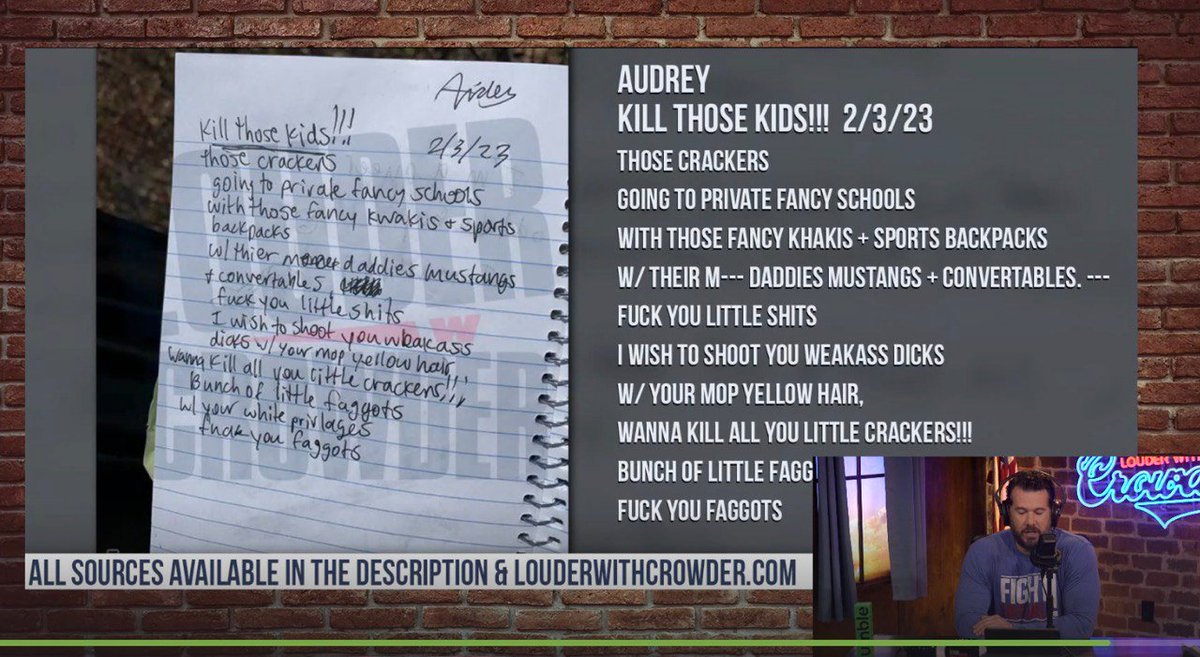 Aiden
Kill those kids!!!
2/3/23
those crackers
going to private fancy schools
with those fancy kwakis + sports
backpacks
w/ thier daddies mustangs
+ convertables
fuck you little shits
I wish to shoot you weakass
dicks w/ your mop yellow hair
wanna kill all you little crackers!!!
Bunch of little faggots
w/ your white privlages
fuck you faggots
AUDREY
KILL THOSE KIDS!!! 2/3/23
THOSE CRACKERS
GOING TO PRIVATE FANCY SCHOOLS
WITH THOSE FANCY KHAKIS + SPORTS BACKPACKS
W/ THEIR M--- DADDIES MUSTANGS + CONVERTABLES. ---
FUCK YOU LITTLE SHITS
I WISH TO SHOOT YOU WEAKASS DICKS
W/ YOUR MOP YELLOW HAIR,
WANNA KILL ALL YOU LITTLE CRACKERS!!!
BUNCH OF LITTLE FAGG
FUCK YOU FAGGOTS
LOUDER WITH
Crowd
FIGH
mble
ALL SOURCES AVAILABLE IN THE DESCRIPTION & LOUDERWITHCROWDER.COM